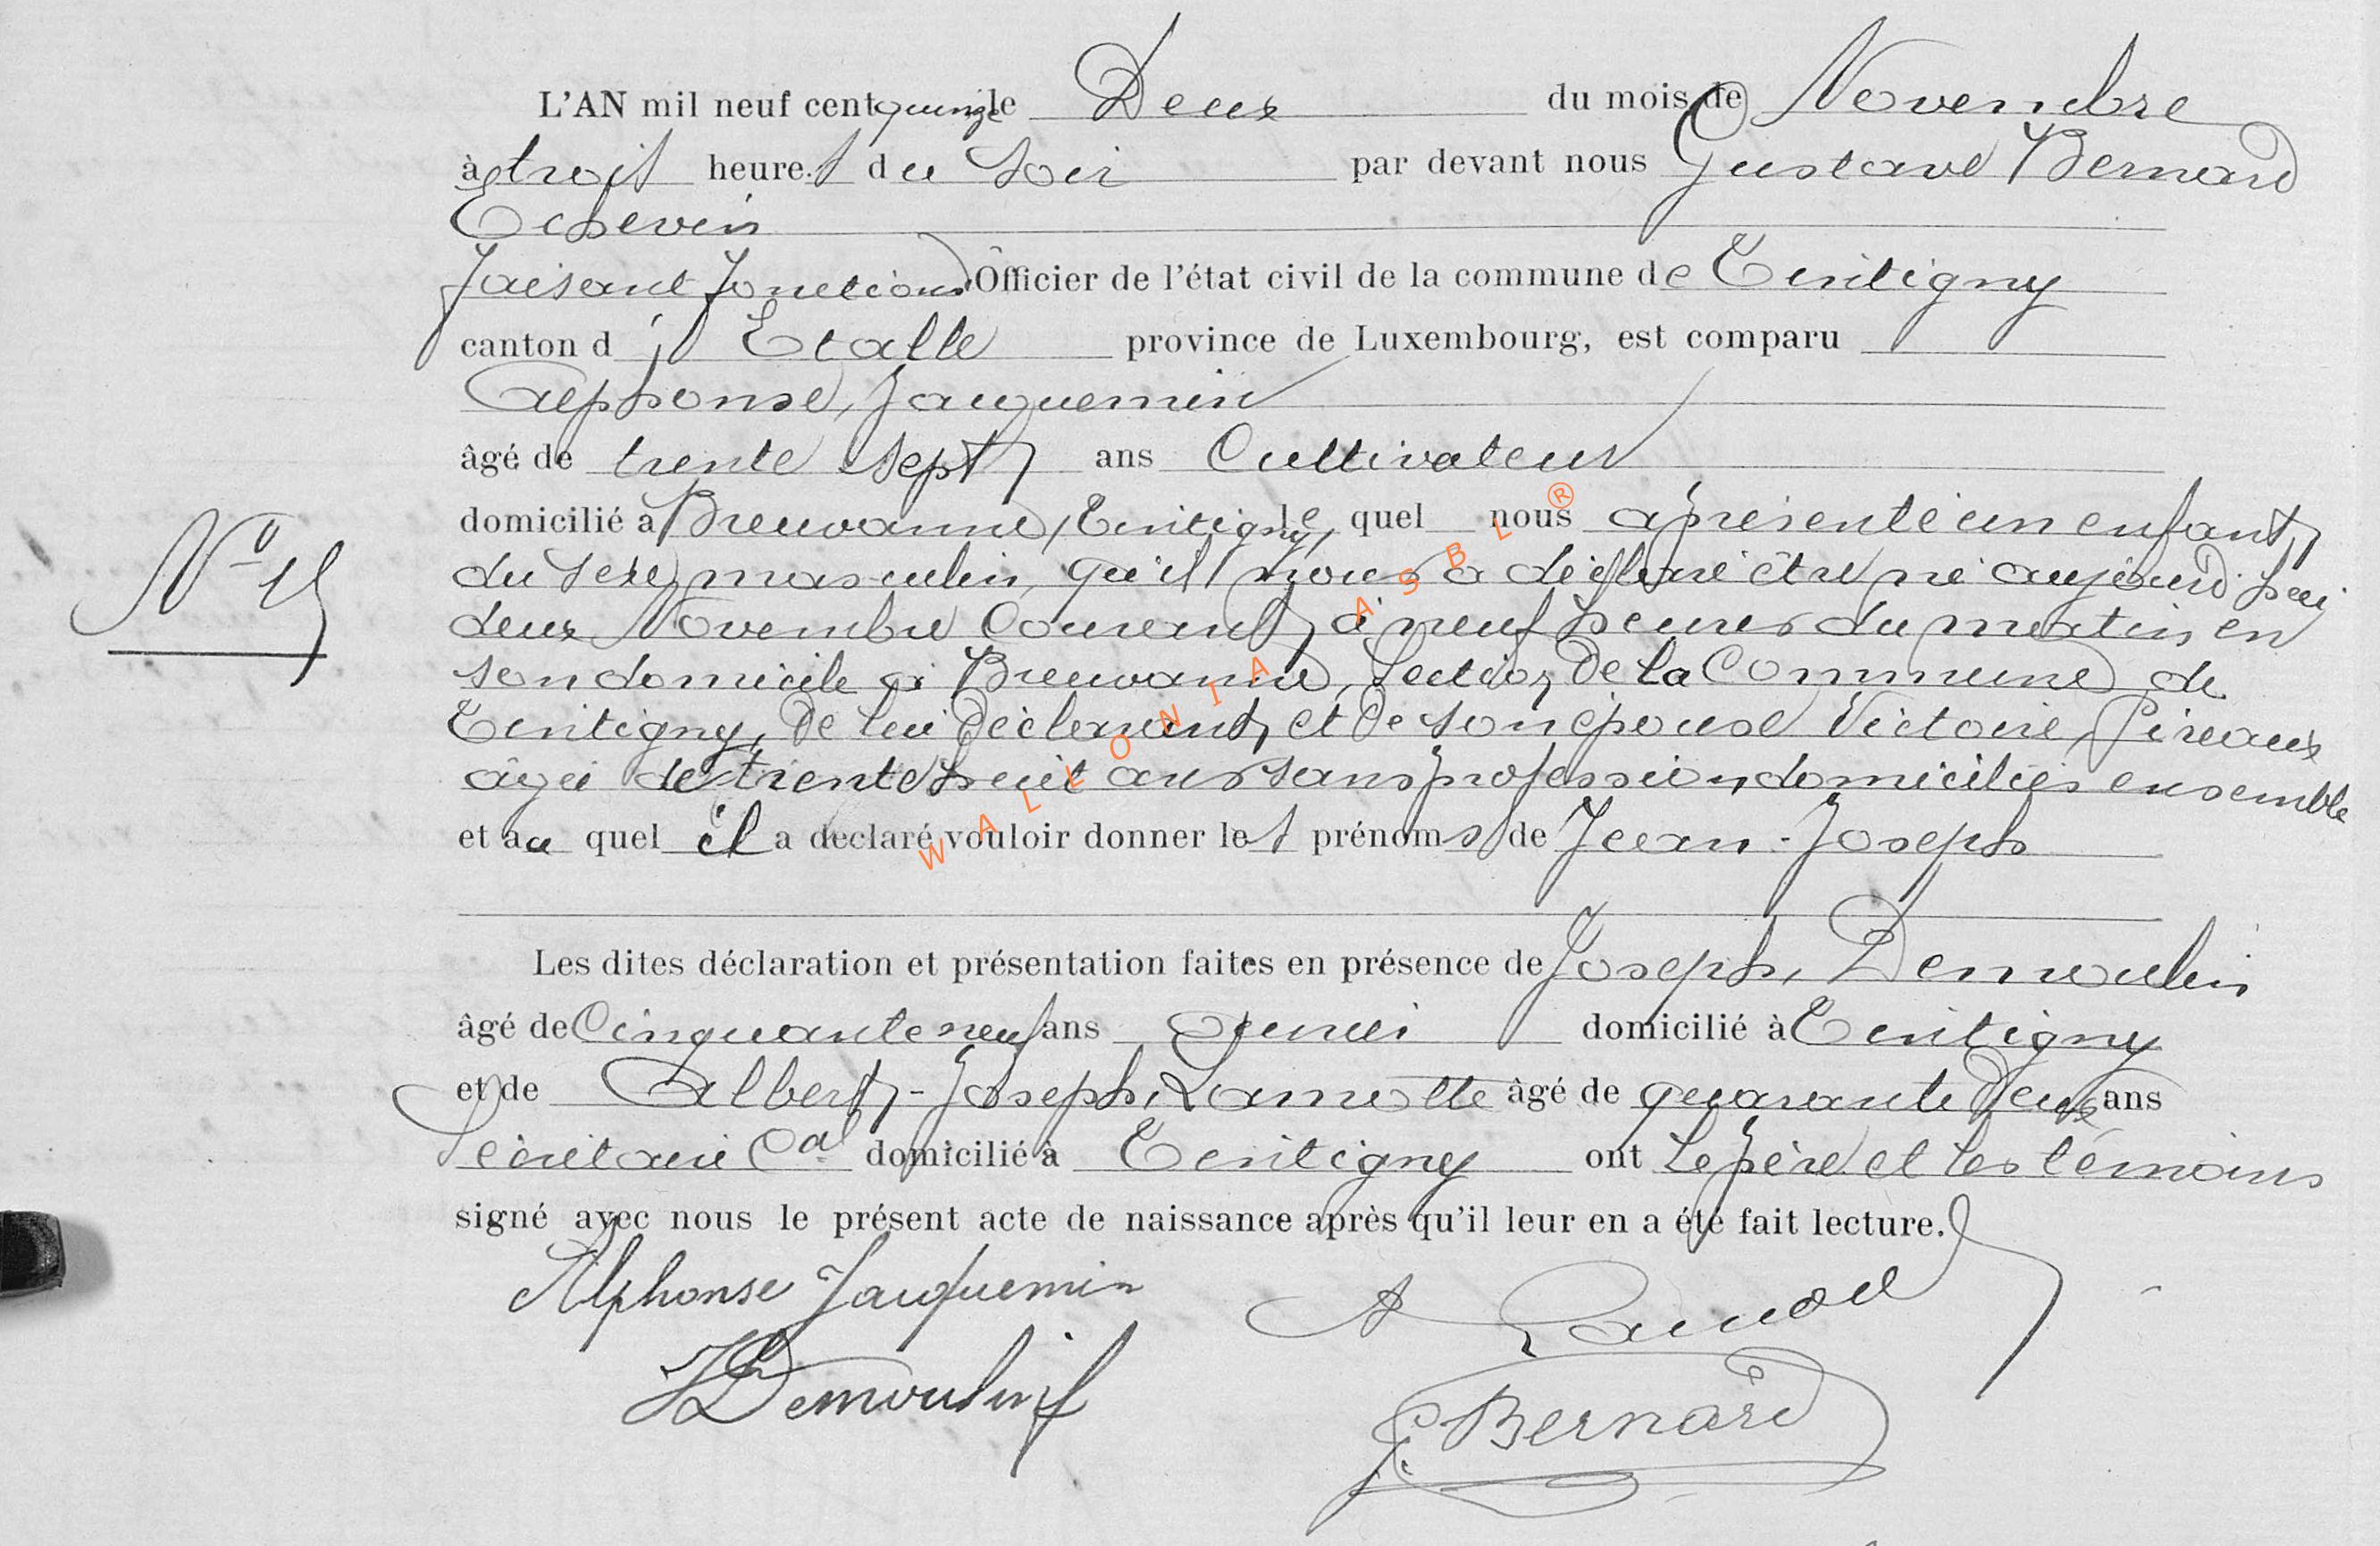 L'AN mil neuf cent quinze le Deux du mois de Novembre
à trois heures du soir par devant nous Gustave Bernard
Echevin
faisant fonctions Officier de l'état civil de la commune de Tintigny
canton d' Etalle province de Luxembourg, est comparu
Alphonse, Jacquemin
âgé de trente sept ans Cultivateur
domicilié à Breuvanne, Tintigny, le quel nous a présenté un enfant
du sexe masculin, qu'il nous a déclaré être né aujourd'hui
deux Novembre Courant, à neuf heures du matin, en
son domicile à Breuvanne, Section de la Commune de
Tintigny, de lui Déclarant, et de son épouse Victoire, Pireaux
âgée de trente huit ans sans profession, domiciliés ensemble
et au quel il a déclaré vouloir donner les prénoms de Jean-Joseph
Les dites déclaration et présentation faites en présence de Joseph, Demoulin
âgé de Cinquante neuf ans domicilié à Tintigny
et de Albert-Joseph, Lamotte âgé de quarante Deux ans
Secrétaire Cal domicilié à Tintigny ont le père et les témoins
signé avec nous le présent acte de naissance après qu'il leur en a été fait lecture.
N° 15
Alphonse Jacquemin
A
J Demoulin
G. Bernard
WALLONIA ASBL ®